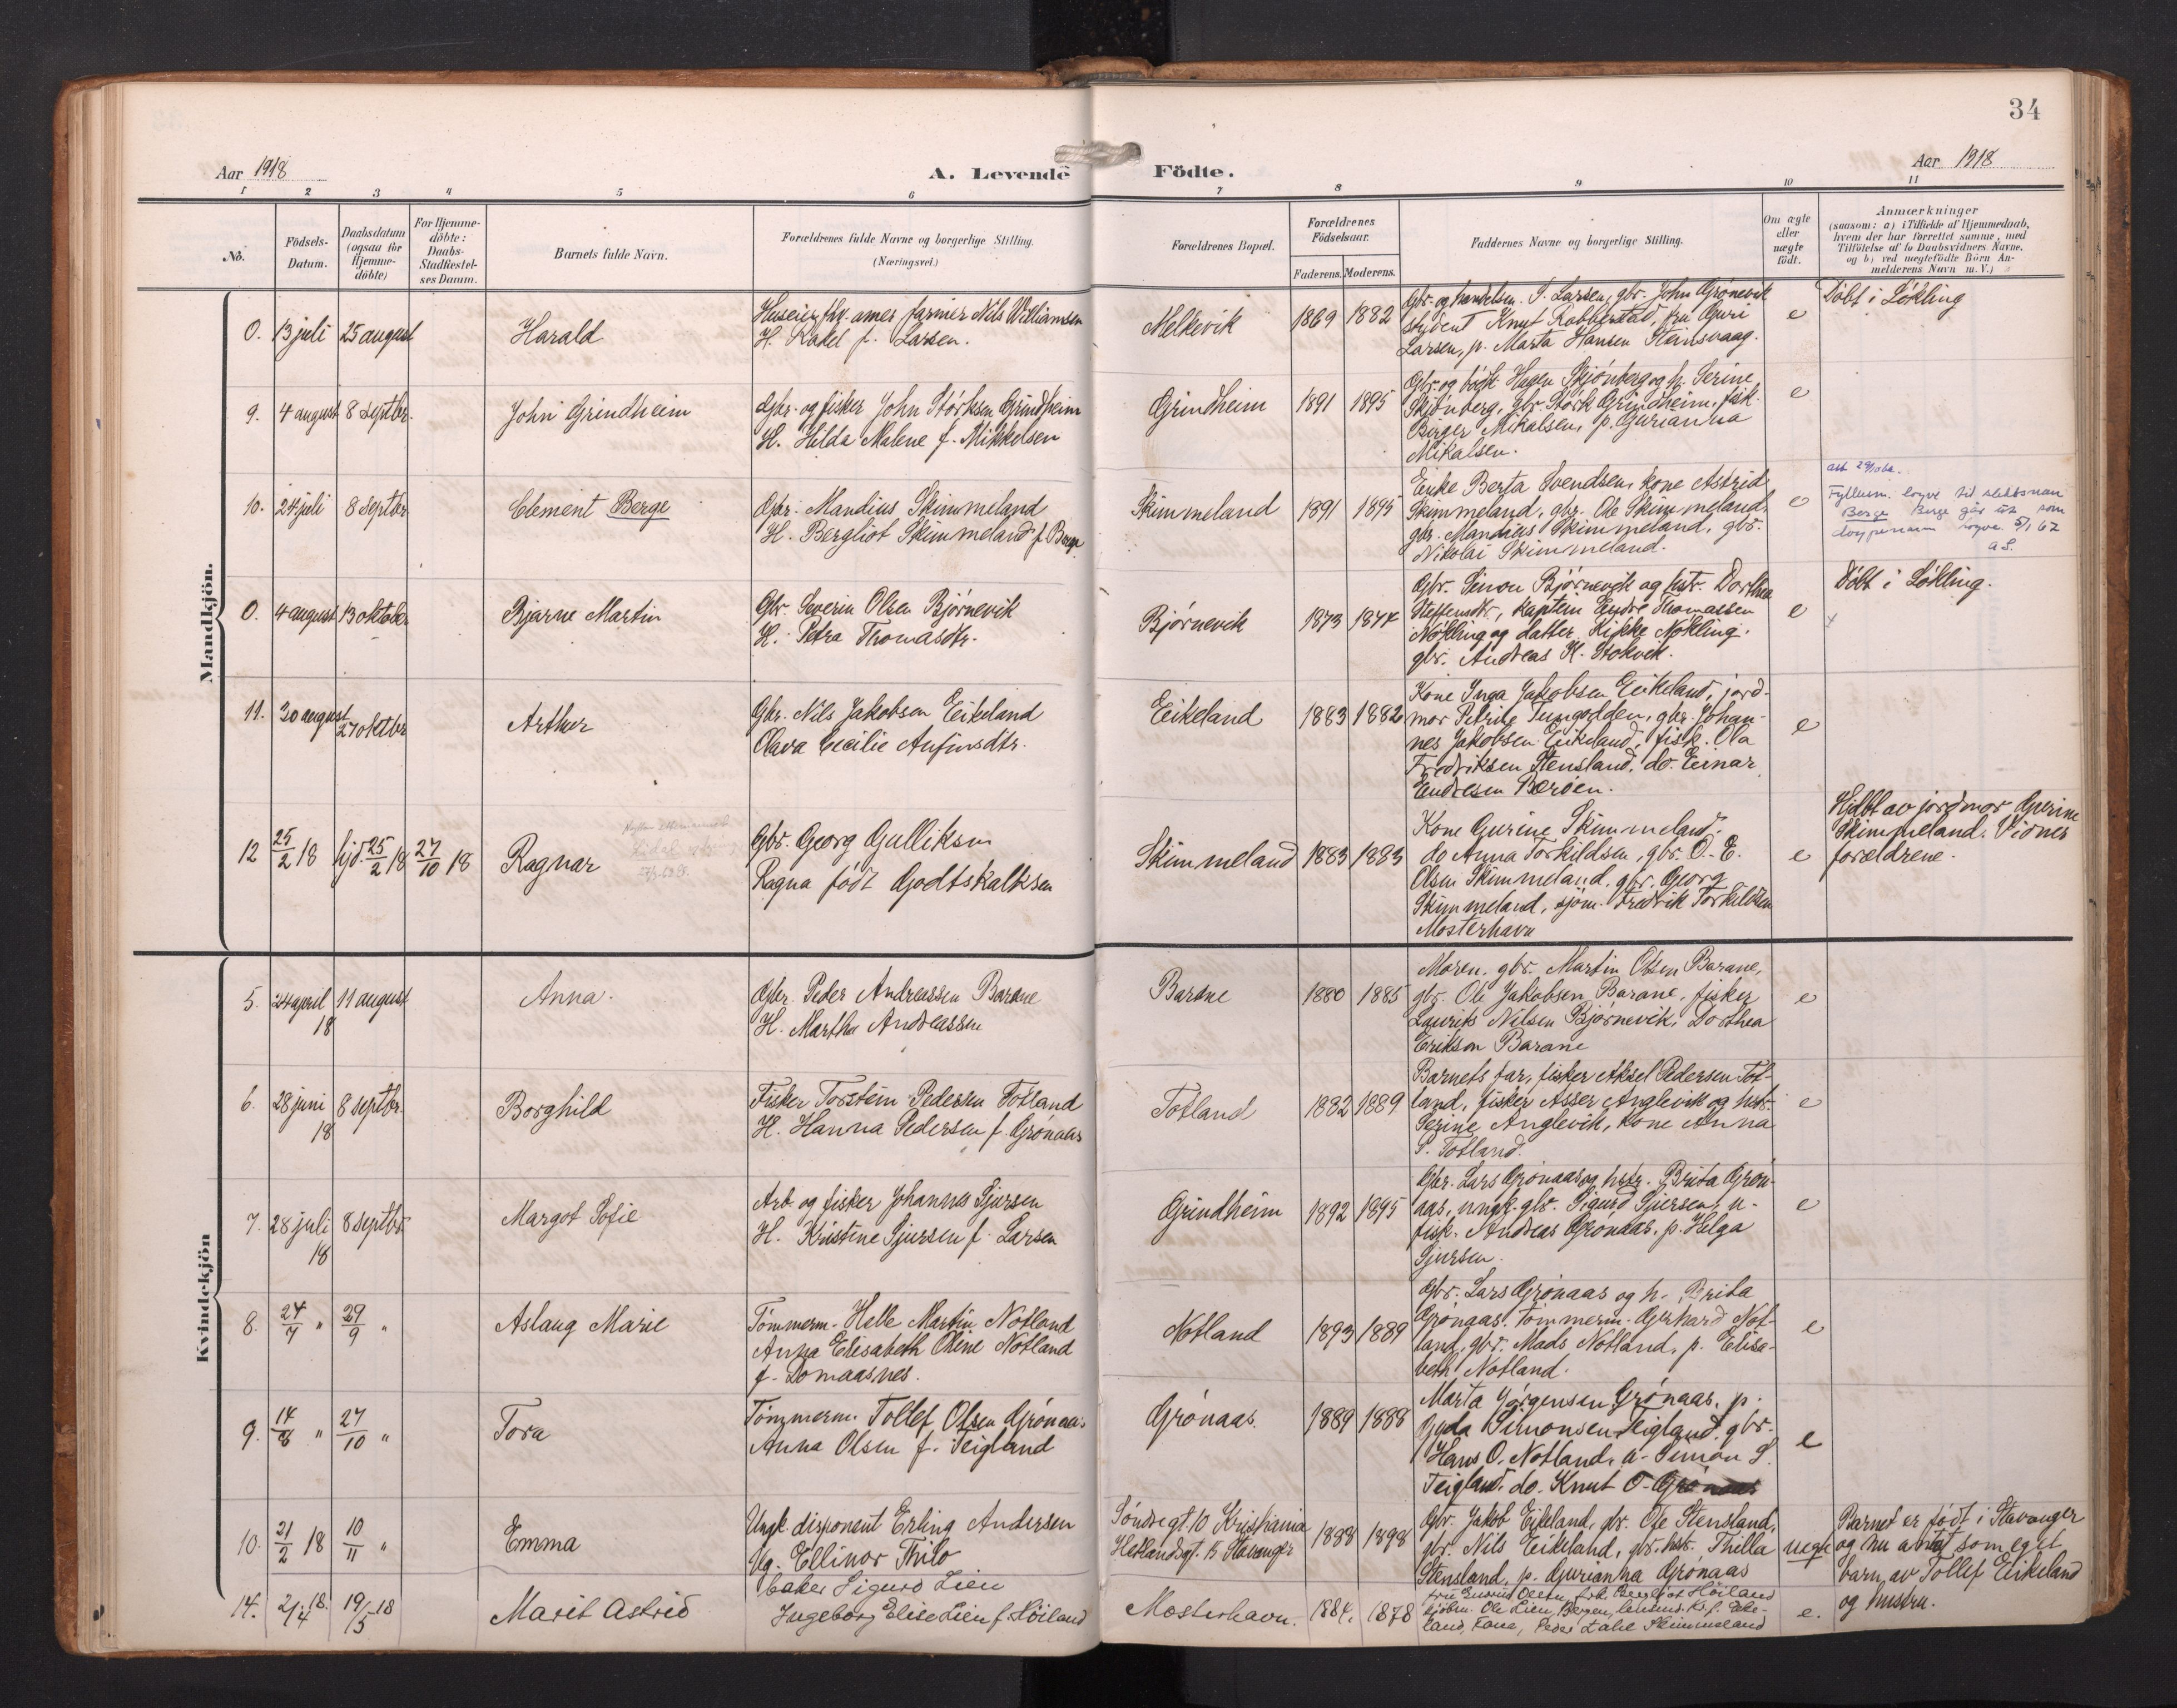 34
Aar 1918
A. Levende Födte.
Aar 1918
1 2 3 4 5 6 7 8 9 10 11
No.
Födsels-
Datum.
Daabsdatum
(ogsaa for
Hjemme-
döbte)
For Hjemme-
döbte:
Daabs-
Stadfæstel-
ses Datum.
Barnets fulde Navn.
Forældrenes fulde Navne og borgerlige Stilling.
(Næringsvei.)
Forældrenes Bopæl.
Forældrenes
Födselsaar.
Faderens. Moderens.
Faddernes Navne og borgerlige Stilling.
Om ægte
eller
uægte
födt.
Anmærkninger
(saasom: a) i Tilfælde af Hjemmedaab,
hvem der har forrettet samme, med
Tilföielse af to Daabsvidners Navne,
og b) ved uægtefödte Börn An-
melderens Navn m. V.)
Mandkjön.
0. 13 juli 25 august Harald
Huseier fhv. amer farmer Nils Williamsen
H. Rakel f. Larsen.
Melkevik 1869 1882
Gbr. og handelsm. S. Larsen, gbr. John Grønevik
student Knut Robberstad, fru Guri
Larsen, p. Marta Hansen Steinsvaag.
e
Døbt i Løkling
9. 4 august 8 septbr. John Grindheim
Gbr. og fisker John Størksen Grindheim
H. Hilda Malene f. Mikkelsen
Grindheim 1891 1895
Gbr. og bødk. Hagen Skjønberg og h. Serine
Skjønberg, gbr. Størk Grindheim, fisk.
Birger Mikalsen, p. Gurianna
Mikalsen.
e
10. 24 juli 8 septbr Clement Berge
Gbr. Mandius Skimmeland
H. Bergliot Skimmeland f. Berge
Skimmeland 1891 1895
Enke Berta Svendsen, kone Astrid
Skimmeland, gbr. Ole Skimmeland,
gbr. Mandius Skimmeland, gbr.
Nikolai Skimmeland.
e
Fylkesm. løyve til slektsnan
Berge Berge går ut som
døypenamn 5/1 62
a S.
0. 4 august 13 oktober Bjarne Martin
Gbr. Severin Olsen Bjørnevik
H. Petra Thomasdtr.
Bjørnevik 1873 1874
Gbr. Simon Bjørnevik og hstr. Dorthea
Steffensdtr, kaptein Endre Thomassen
Nøkling og datter Kikke Nøkling.
gbr. Andreas H. Stokvik.
e
Døbt i Løkling.
11. 30 august 27 oktbr Arthur
Gbr. Nils Jakobsen Eikeland
Olava Cecilie Anfinsdtr.
Eikeland 1883 1882
Kone Inga Jakobsen Eikeland, jord-
mor Petrine Tungodden, gbr. Johan-
nes Jakobsen Eikeland, fisk. Ola
Fredriksen Stensland, do. Einar
Endresen Børøen.
e
12 25/2 18 hjd. 25/2 18 27/10 18 Ragnar
Gbr. Georg Gulliksen
Ragna født Godtskalksen
Skimmeland 1883 1883
Kone Gurine Skimmeland.
do Anna Torkildsen, gbr. O. E.
Olsen Skimmeland, gbr. Georg
Skimmeland, sjøm. Fredrik Torkildsen
Mosterhavn
e
Hjdbt av jordmor Gurine
Skimmeland. Vidner
forældrene.
Kvindekjön
5. 24 april 18 11 august Anna.
Gbr. Peder Andreassen Barane
H. Martha Andreassen
Barane 1880 1885
Moren, gbr. Martin Olsen Barane,
gbr. Ole Jakobsen Barane, fisker
Laurits Nilsen Bjørnevik, Dorthea
Eriksen Barane
e
6. 28 juni 18 8 septbr. Borghild
Fisker Torstein Pedersen Totland
H. Hanna Pedersen f. Grønaas
Totland 1882 1889
Barnets far, fisker Aksel Pedersen Tot-
land, fisker Asser Anglevik og hstr.
Serine Anglevik, kone Anna
P. Totland.
e
7. 28 juli 18 8 septbr. Margot Sofie
Arb. og fisker Johannes Sjursen
H. Kristine Sjursen f. Larsen
Grindheim 1892 1895
Gbr. Lars Grønaas og hstr. Brita Grøn-
aas, ungk. gbr. Sigurd Sjursen, u-
fisk. Andreas Grønaas, p. Helga
Sjursen.
e
8. 24/7 " 29/9 " Aslaug Marie
Tømmerm. Helle Martin Notland
Anna Elisabeth Oline Notland
f. Lomaasnes.
Notland 1893 1889
Gbr. Lars Grønaas og h. Brita
Grønaas. Tømmerm. Gerhard Not-
land, gbr. Mads Notland, p. Elisa-
beth Notland.
e
9. 14/8 " 27/10 " Tora
Tømmerm. Tollef Olsen Grønaas
Anna Olsen f. Teigland
Grønaas. 1889 1888
Marta Jørgensen Grønaas, p.
Gyda Simonsen Teigland, gbr.
Hans O. Notland, a. Simon S.
Teigland, do. Knut O. Grønaas
e
10. 21/2 18 10/11 " Emma
Ungk. disponent Erling Andersen
Ug. Ellinor Thilo
Søndregt. 10 Kristiania
Hetlandsgt. 15 Stavanger
1888 1898
Gbr. Jakob Eikeland, gbr. Ole Stensland,
gbr. Nils Eikeland, gbr. hstr. Thilla
Stensland, p. Gurianna Grønaas
uegt
Barnet er født i Stavanger
og nu antat som eget
barn av Tollef Eikeland
og hustru.
14. 2/4. 18. 19/5 18 Marit Astrid
baker Sigurd Lien
Ingeborg Elise Lien f. Høiland
Mosterhavn. 1884. 1878
Ole Lien, Bergen,
land, kone, Peder Skimmeland
e.